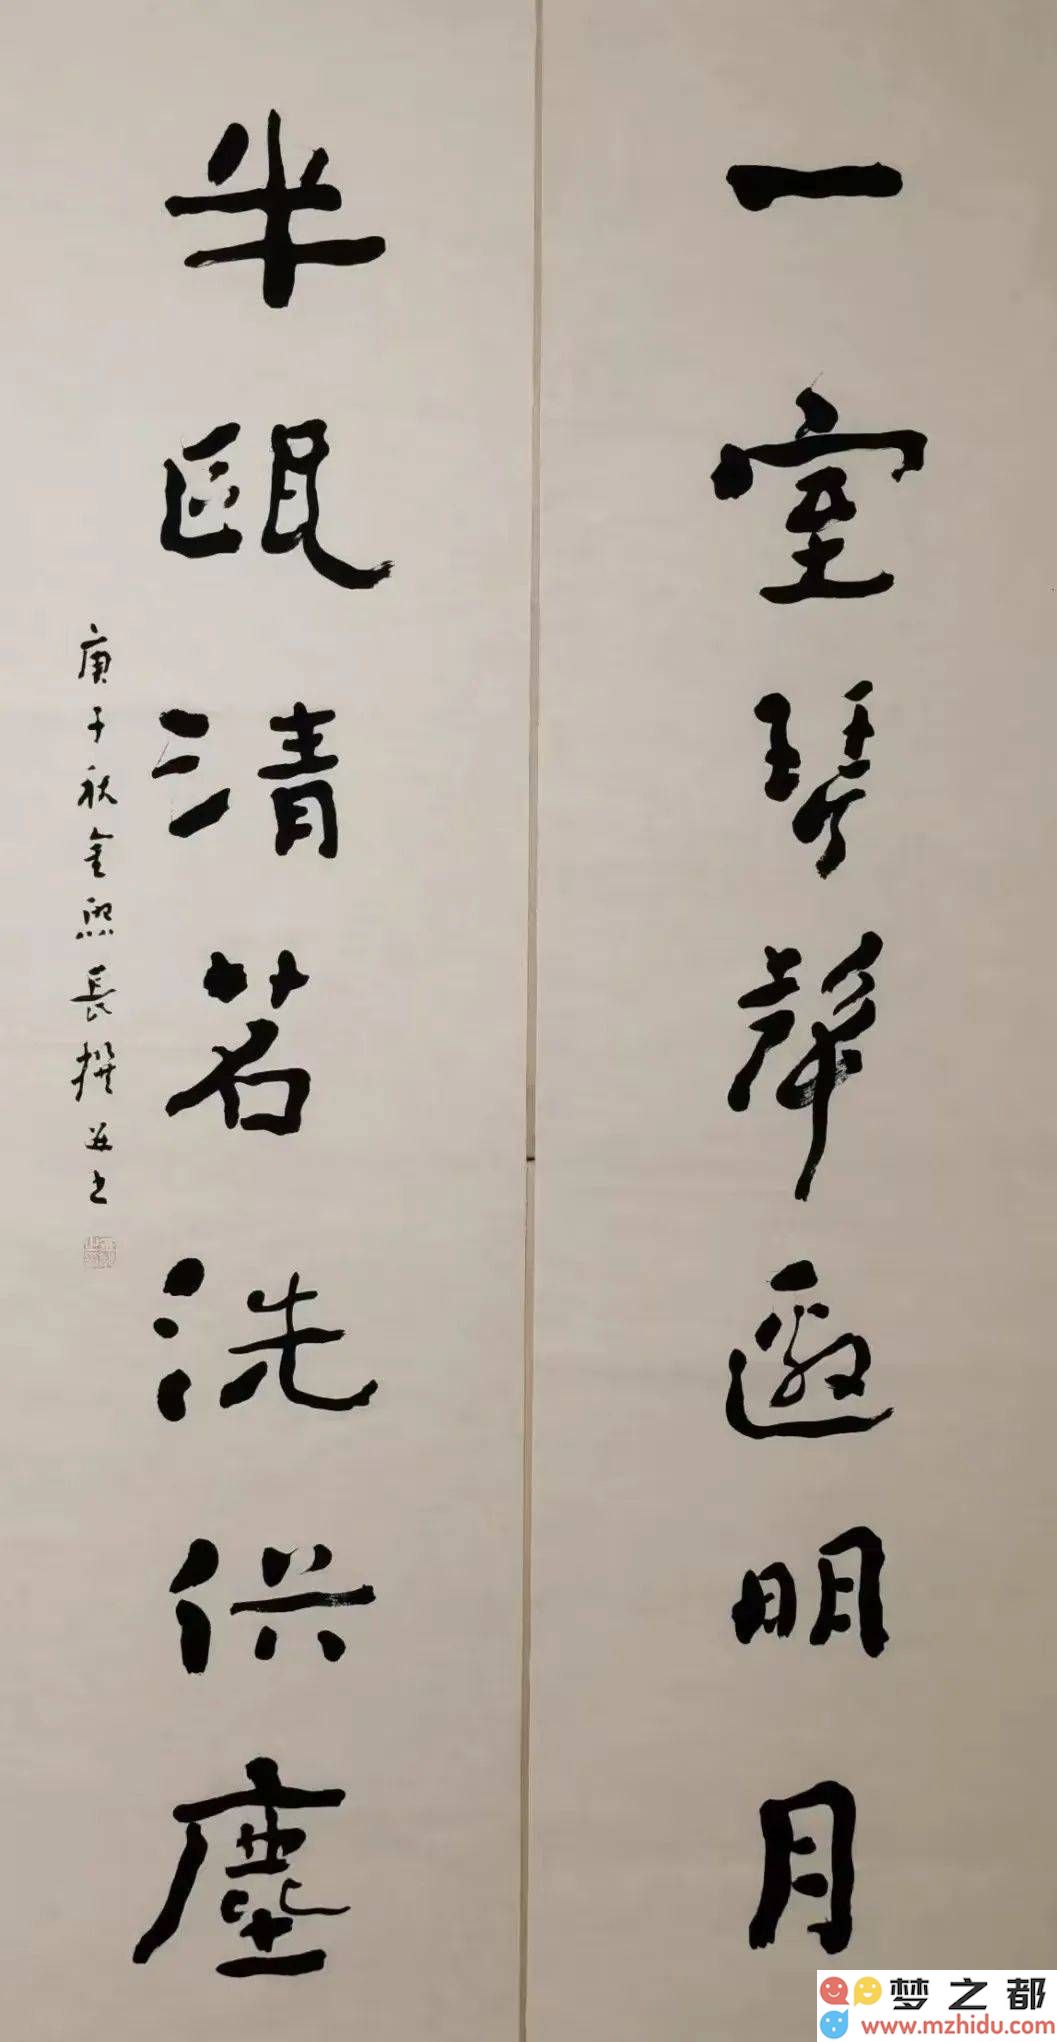 一室琴聲邀明月
半甌清茗洗俗塵
庚子秋金煕長撰並书
梦之都
www.mzhidu.com